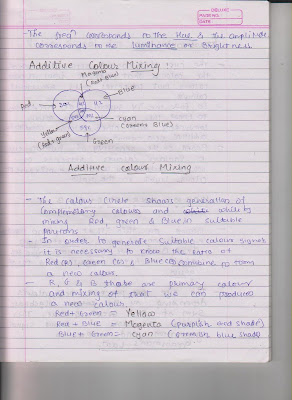 - The freqⁿ corresponds to the Hue & the amplitude
corresponds to the luminance or Brightness
Additive Colour Mixing
Magenta
(Red+Blue)
Red
Blue
Yellow
(Red+green)
Cyan
(Green Blue)
Green
Additive colour Mixing
- The colour Circle shows generation of
Complementary colours and white by
mixing Red, green & Blue in suitable
- In order to generate Suitable colour signal
it is necessary to know the ratio of
Red (R), Green (G) & Blue (B) combine to form
a new colour.
- R, G & B these are primary colour
and mixing of these we can produced
a new colour
Red + Green = Yellow
Red + Blue = Magenta (purplish red shade)
Blue + Green = Cyan (Greenish blue shade)